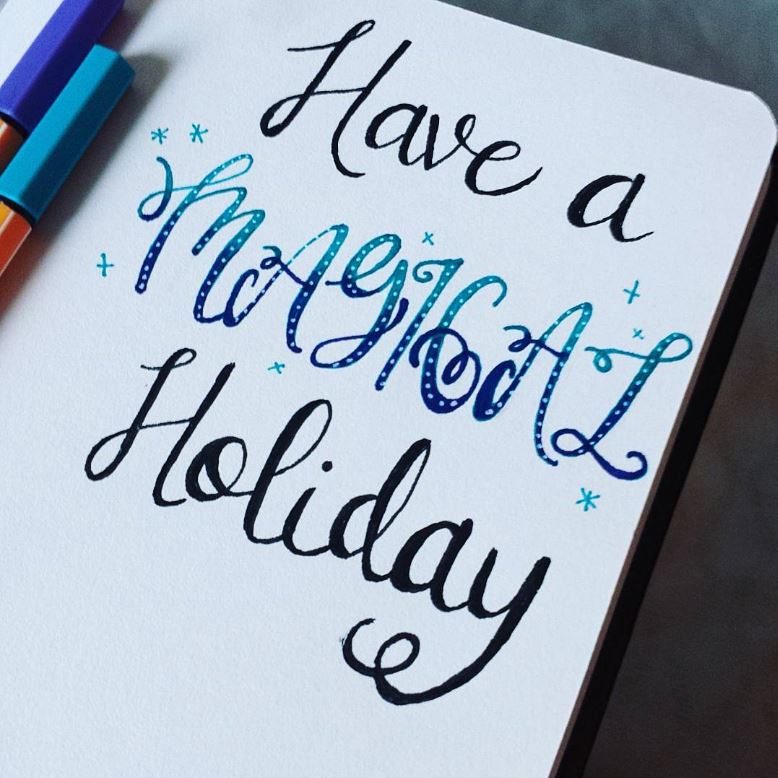 Have a
MAGICAL
Holiday